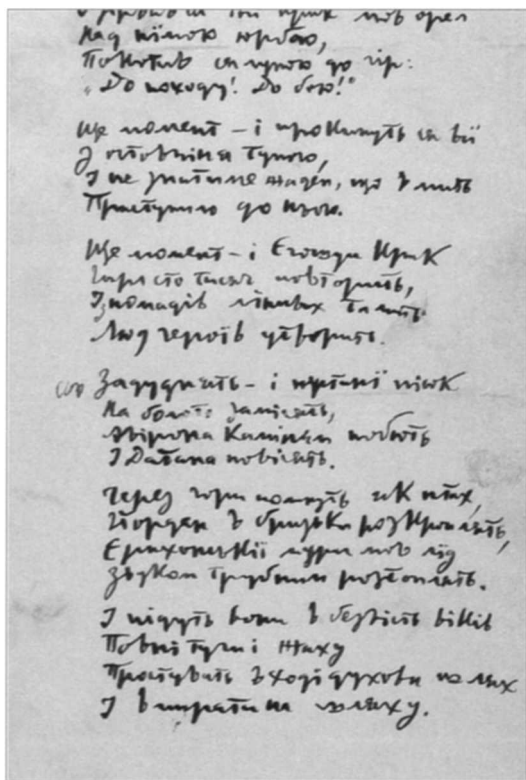 той крик мов орел
Над німою юрбою,
Покотив ся луною до гір:
"До походу! До бою!"
Ще момент – і прокинуть ся всї
З остовпіня тупого,
І не знатиме жаден, що в мить
Приступило до нього.
Ще момент – і крик
сто тисяч повторить,
Із номадів лїнивих та мить
Люд героїв утворить.
Задуднять – і пісок
На болото замісять,
Авірона камінєм побють
І Датана повісять.
Через гори полинуть як птах,
Йордан в бризьки розкроплять,
Єрихонськії мури мов лїд
Звуком трубним розтоплять.
І підуть вони в безвість віків
Повні туги і жаху
Простувать в ходї духови шлях
І вмирати на шляху.